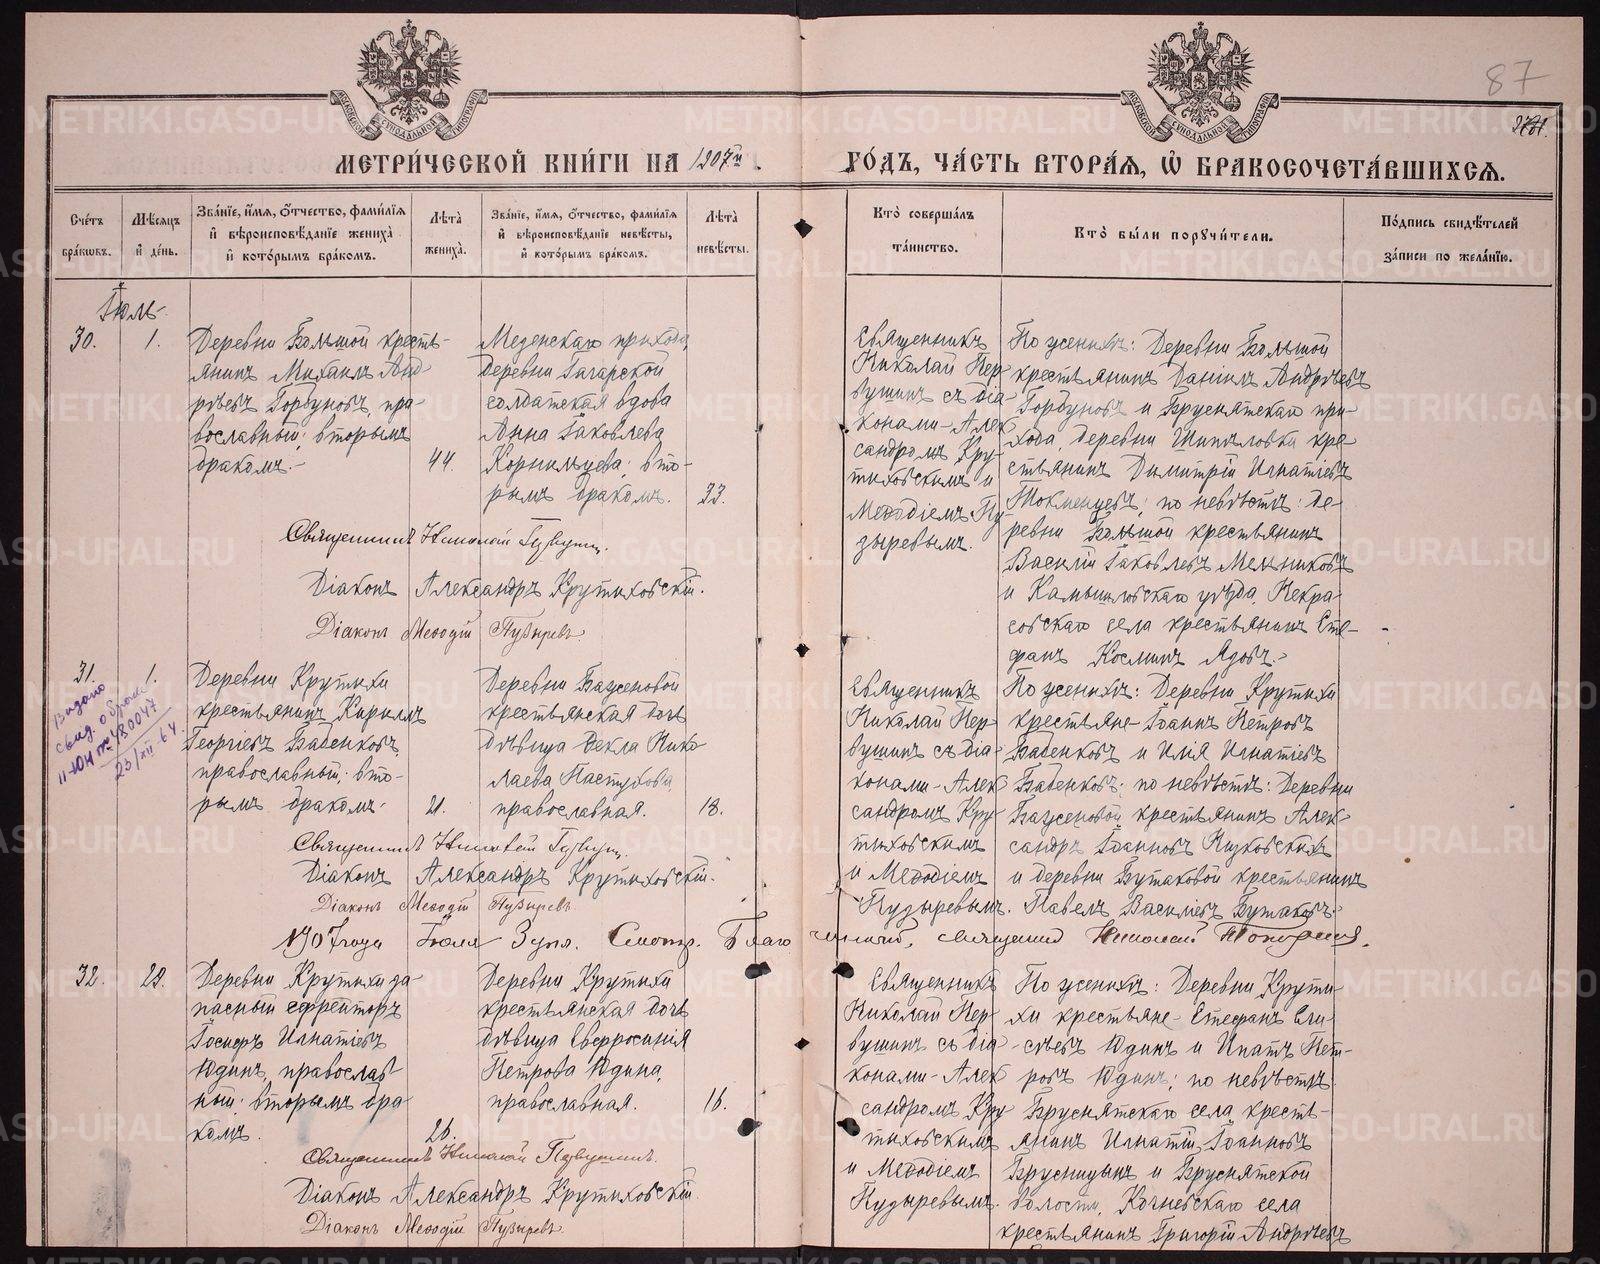 87
МЕТРИ́ЧЕСКОЙ КНИ́ГИ НА 1907й.
ГО́ДЪ, ЧА́СТЬ ВТОРА́Я, Ѽ БРАКОСОЧЕТА́ВШИХСЯ.
Сче́тъ бра́кѡвъ.
Мѣ́сяцъ и҆ де́нь.
Зва́нїе, и҆́мя, ѻ҆́тчество, фами́лїя и҆ вѣроисповѣ́данїе жениха̀ и҆ кото́рымъ бра́комъ.
Лѣ́та жениха̀.
Зва́нїе, и҆́мя, ѻ҆́тчество, фами́лїя и҆ вѣроисповѣ́данїе невѣ́сты, и҆ кото́рымъ бра́комъ.
Лѣ́та невѣ́сты.
Кто̀ соверша́лъ та́инство.
Кто̀ бы́ли порꙋчи́тели.
По́дпись свидѣ́телей за́писи по жела́нїю.
Іюль
30.
1.
Деревни Большой кресть-
янинъ Михаилъ Анд-
реевъ Горбуновъ, пра-
вославный; вторымъ
бракомъ.-
44.
Меденскаго прихода,
деревни Гагарской
солдатская вдова
Анна Іаковлева
Корнильцева; вто-
рымъ бракомъ.
33.
Священникъ
Николай Пер-
вушинъ съ діа-
конами- Алек
сандромъ Кру-
тиховскимъ и
Меѳодіемъ Пу
зыревымъ.
По женихѣ: Деревни Большой
крестьянинъ Даніилъ Андреевъ
Горбуновъ и Бруснятскаго при-
хода, деревни Шипиловки кре-
стьянинъ Димитрій Игнатіевъ
Токменцевъ; по невѣстѣ: де-
ревни Большой крестьянинъ
Василій Іаковлевъ Мельниковъ
и Камышловскаго уѣзда, Некра-
совскаго села крестьянинъ Сте-
фанъ Косминъ Ядовъ.-
Священникъ Николай Первушин.
Діаконъ Александръ Крутиховскій.
Діаконъ Меѳодій Пузыревъ
31.
1.
Выдано
свид. о браке
II-ЮН № 480047
23/XII-64.
Деревни Крутихи
крестьянинъ Кириллъ
Георгіевъ Бабенковъ,
православный; вто-
рымъ бракомъ-
21.
Деревни Баженовой
крестьянская дочь
дѣвица Ѳекла Нико
лаева Пастухова,
православная.
18.
Священникъ
Николай Пер
вушинъ съ діа-
конами- Алек
сандромъ Кру-
тиховскимъ
и Меѳодіемъ
Пузыревымъ.
По женихѣ: Деревни Крутихи
крестьяне- Іоаннъ Петровъ
Бабенковъ и Илія Игнатіевъ
Бабенковъ; по невѣстѣ: Деревни
Баженовой крестьянинъ Алек-
сандръ Іоанновъ
и деревни Бутаковой крестьянинъ
Павелъ Василіевъ Бутаковъ.-
Священникъ Николай Первушин.
Діаконъ Александръ Крутиховскій.
Діаконъ Меѳодій Пузыревъ.
1907 года Іюля 3 дня. Смотр. Благочинный, священник Николай
32.
29.
Деревни Крутихи за
пасный ефрейторъ
Іосифъ Игнатіевъ
Юдинъ, православ-
ный; вторымъ бра
комъ.
26.
Деревни Крутихи
крестьянская дочь
дѣвица Евфросинія
Петрова Юдина,
православная.
16.
Священникъ
Николай Пер-
вушинъ съ діа
конами- Алек
сандромъ Кру
тиховскимъ
и Меѳодіемъ
Пузыревымъ.
По женихѣ: Деревни Крути-
хи крестьяне- Стефанъ Ели-
сѣевъ Юдинъ и Ипатъ Пет-
ровъ Юдинъ; по невѣстѣ:
Бруснятскаго села кресть-
янинъ Игнатій Іоанновъ
Брусницынъ и Бруснятской
волости, Кочневскаго села
крестьянинъ Григорій Андреевъ
Священникъ Николай Первушинъ.
Діаконъ Александръ Крутиховскій
Діаконъ Меѳодій Пузыревъ
METRIKI.GASO-URAL.RU